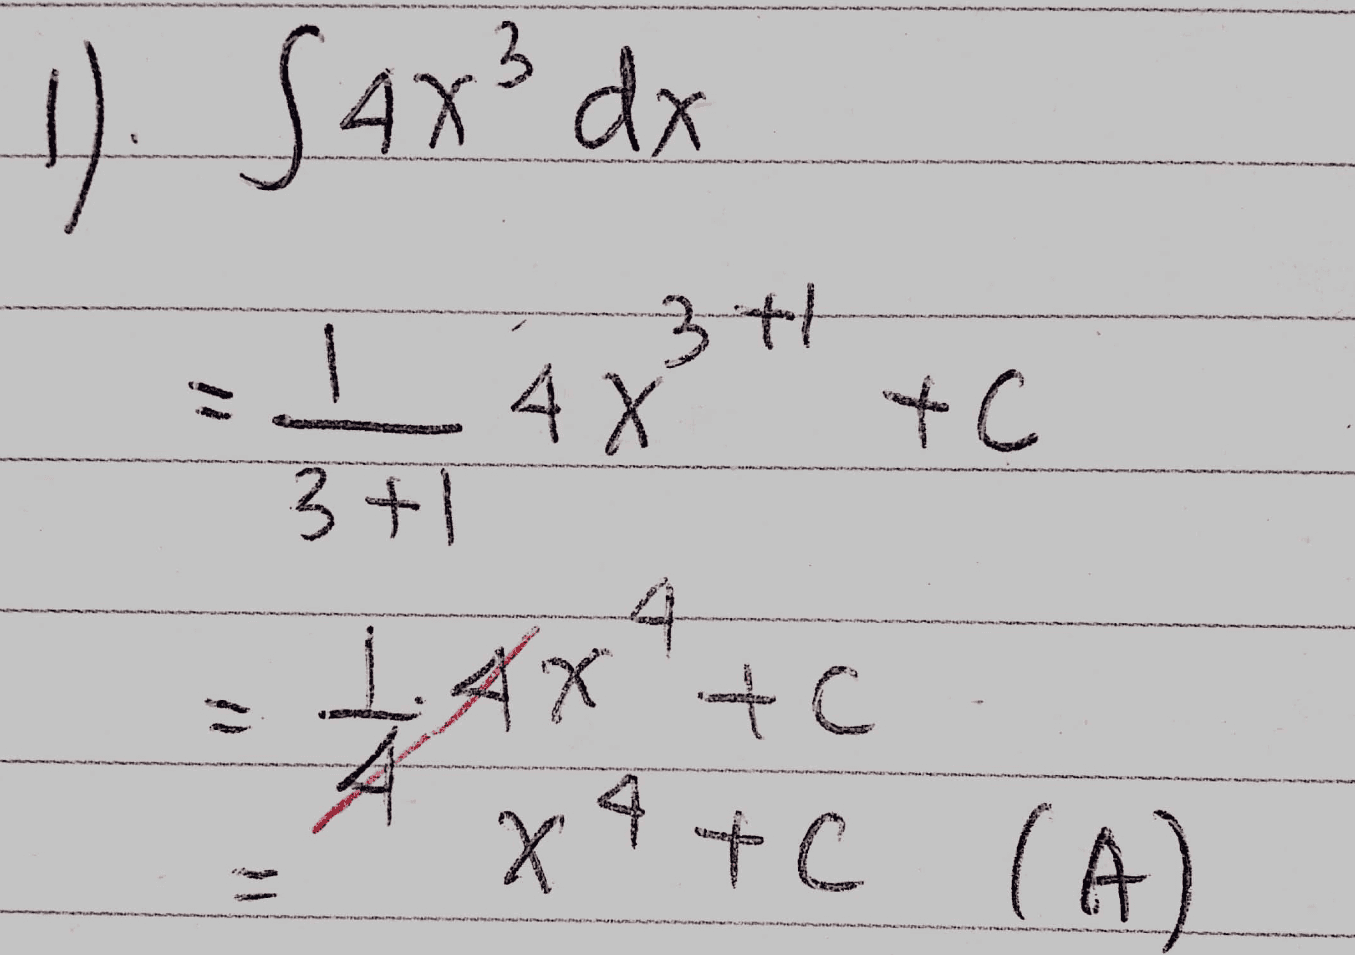 1). ∫4x³ dx
= 1/(3+1) 4x³⁺¹ + C
= 1/4 · 4x⁴ + C
= x⁴ + C (A)